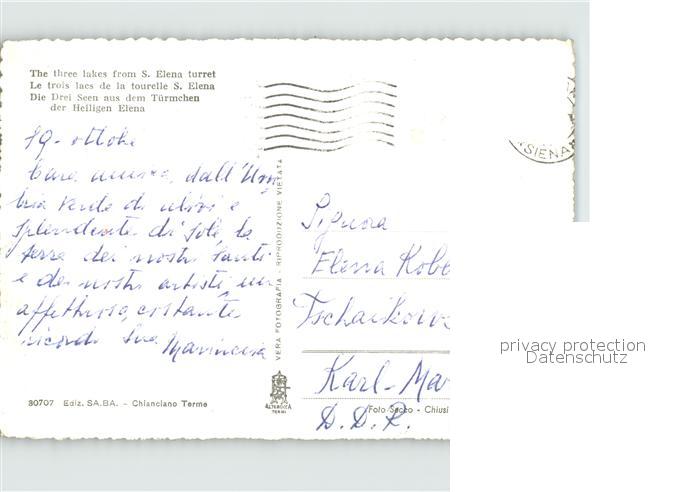 The three lakes from S. Elena turret
Le trois lacs de la tourelle S. Elena
Die Drei Seen aus dem Türmchen
der Heiligen Elena
19 - ottobre
Cara amica, dall'Um
bria verde di ulivi e
splendente di sole, la
terra dei nostri santi
e dei nostri artisti, un
affettuoso, costante
ricordo Sua
SIENA
VERA FOTOGRAFIA - RIPRODUZIONE VIETATA
Signora
Elena Kobe
Tschaikows
Karl-Mar
D.D.R.
80707 Ediz. SA.BA. - Chianciano Terme
ALTEROCCA
TERNI
Foto Secco - Chiusi
privacy protection
Datenschutz